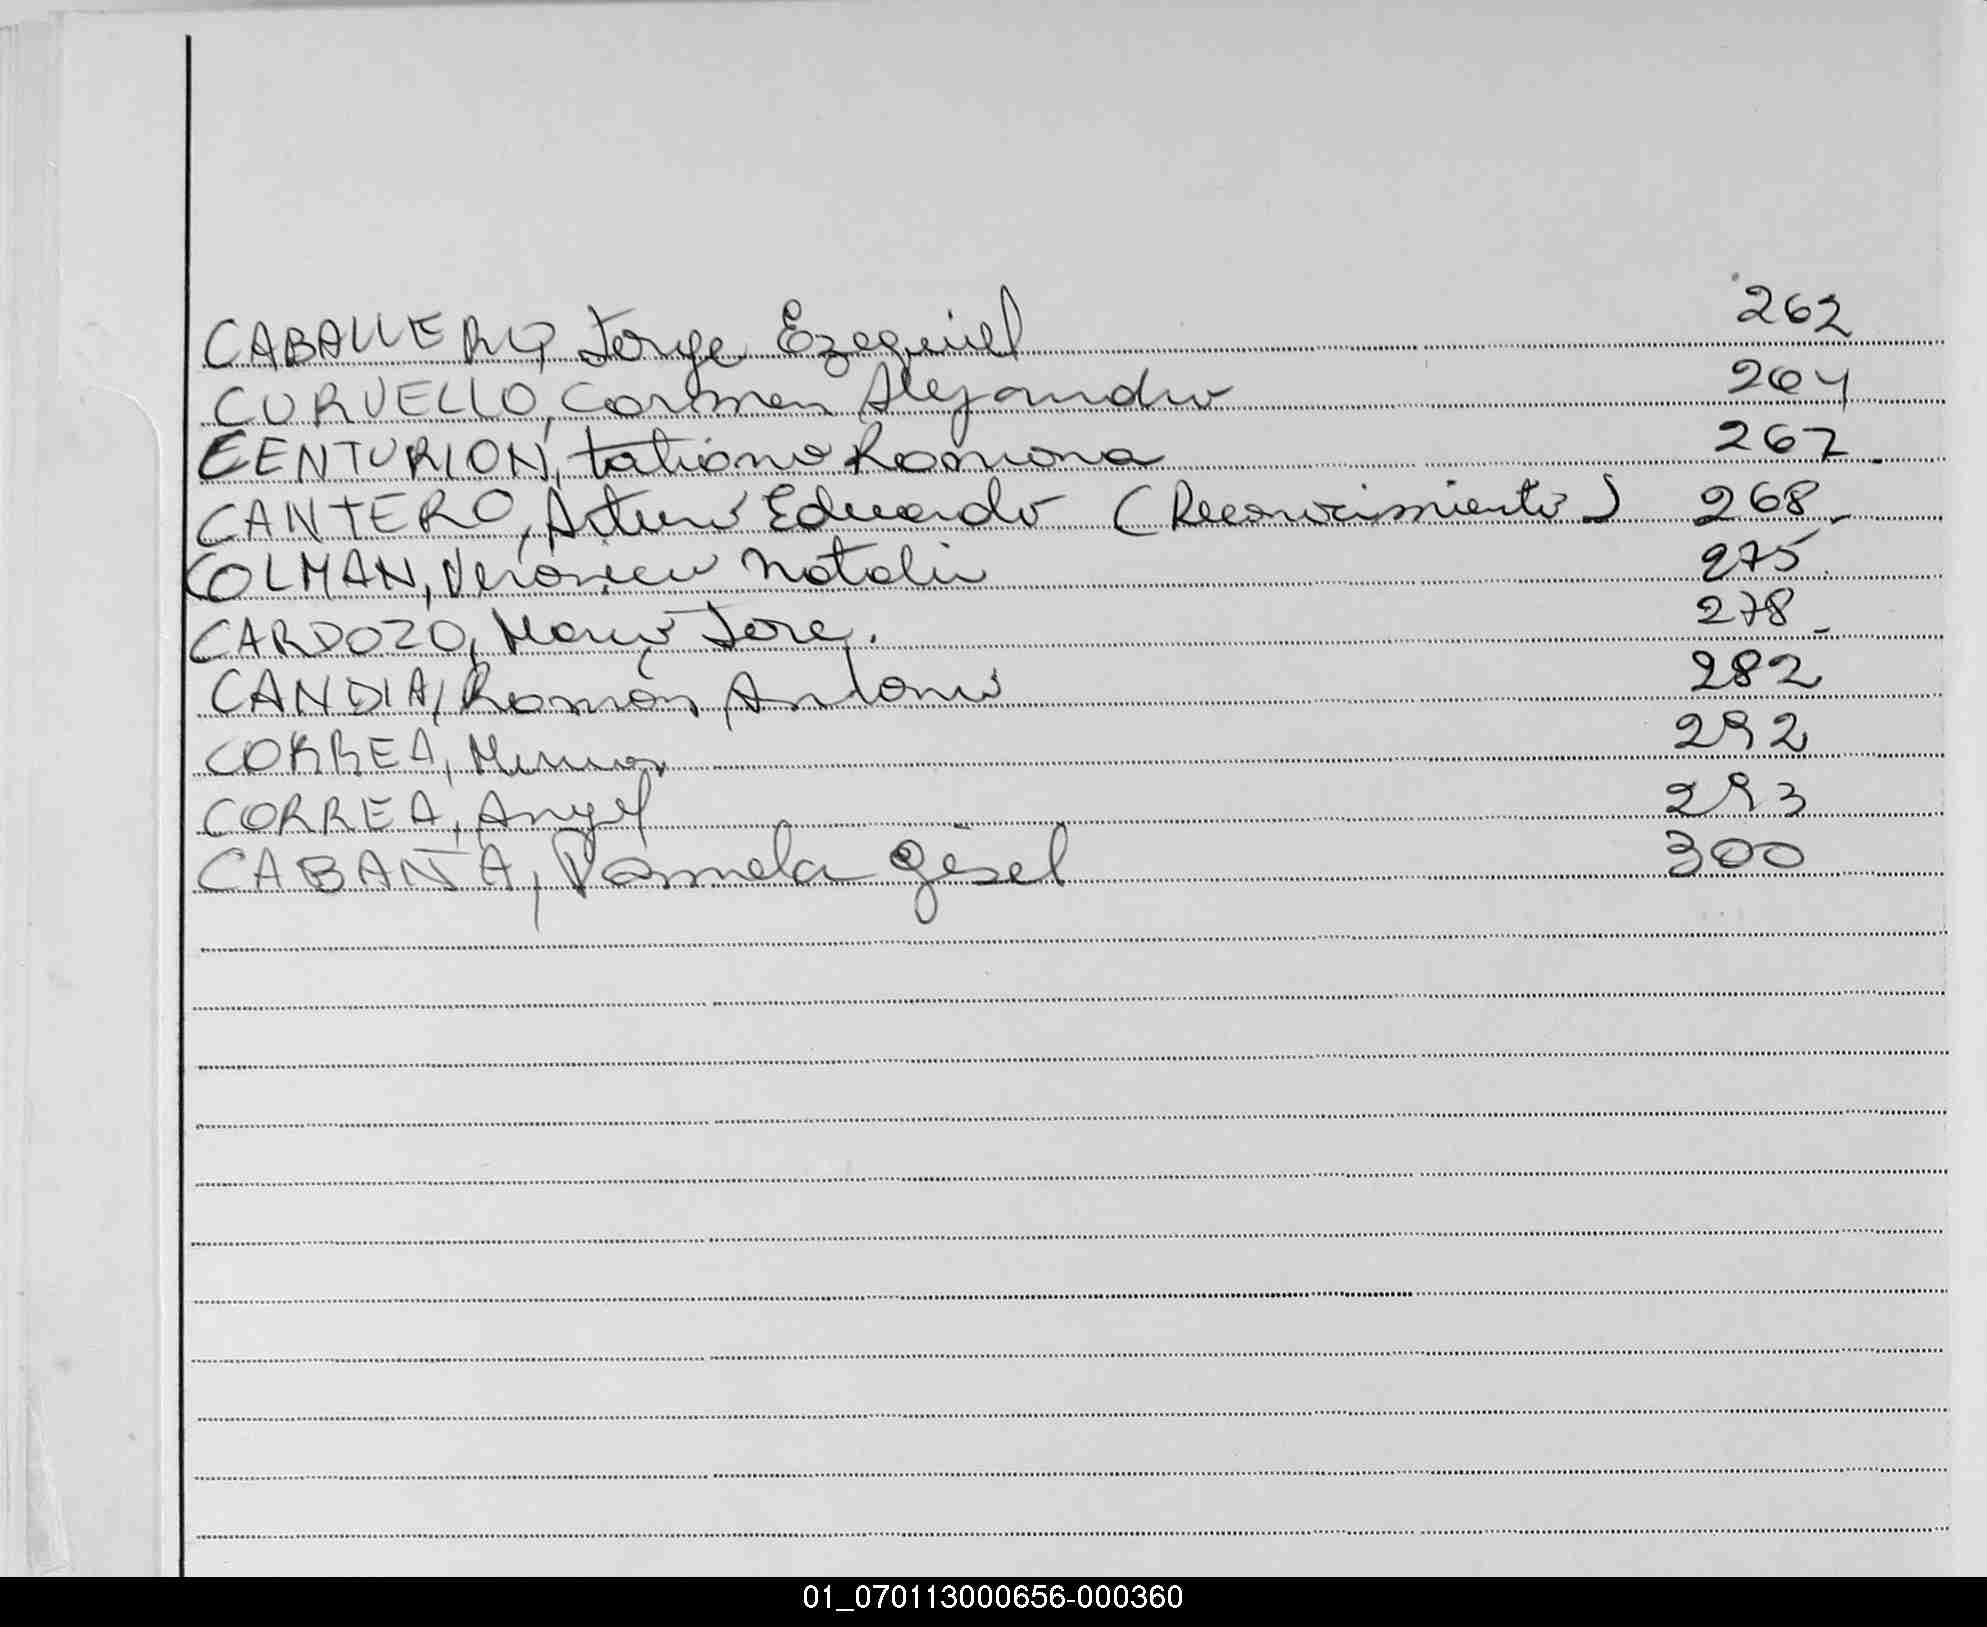 CABALLERO, Jorge Ezequiel 262
CURVELLO, Carmen Alejandra 264
CENTURION, Tatiana Romona 267
CANTERO, Arturo Eduardo (Reconocimiento) 268
COLMAN, Veronica Natalia 275
CARDOZO, Mario Jose. 278
CANDIA, Román Antonio 282
CORREA, 292
CORREA, Angel 293
CABAÑA, Pamela Gisel 300
01_070113000656-000360